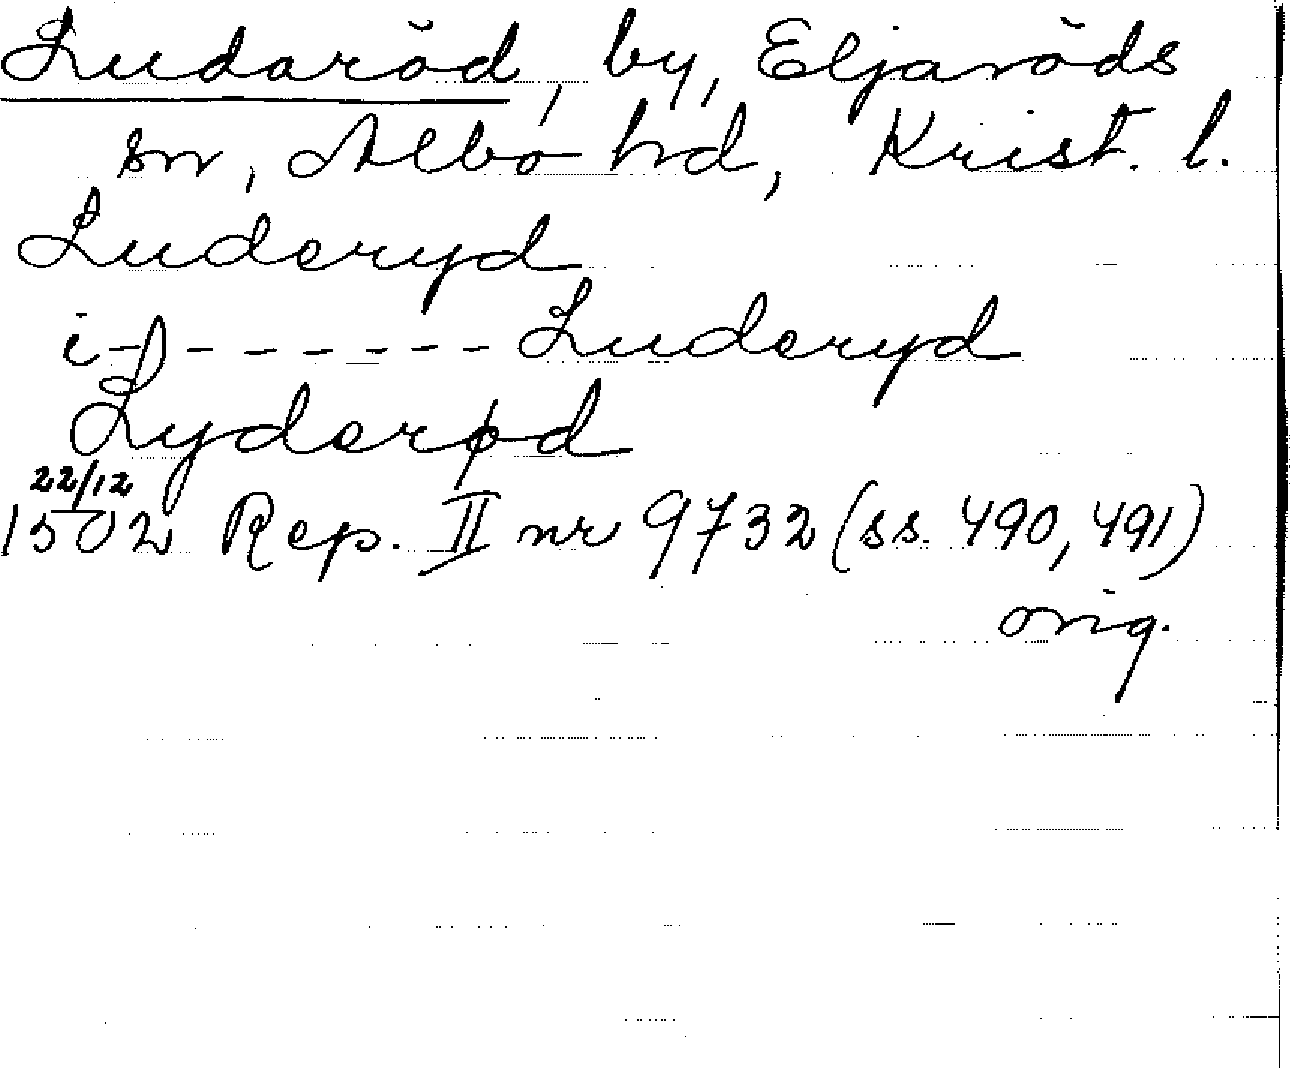 Ludaröd, by, Eljaröds
sn, Albo hd, Krist. l.
Luderyd
i - - - - - - - Luderyd
Lyderød
22/12
1502 Rep. II nr 9732 (ss. 490, 491)
orig.